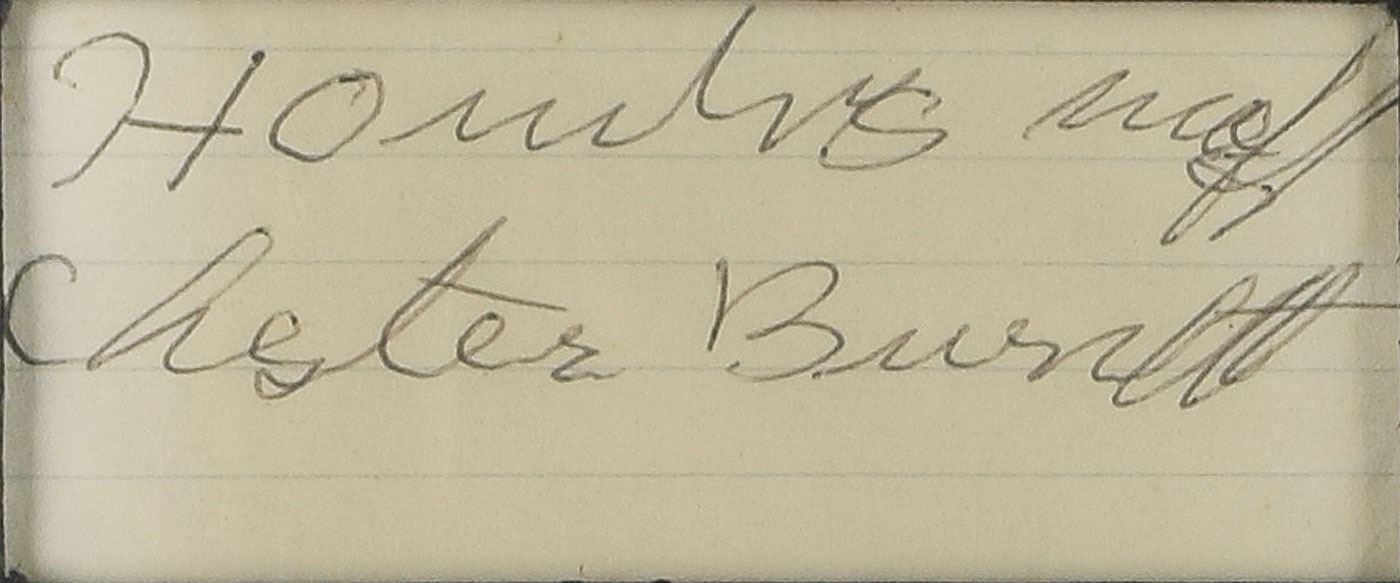 Howling wolf
Chester Burnett